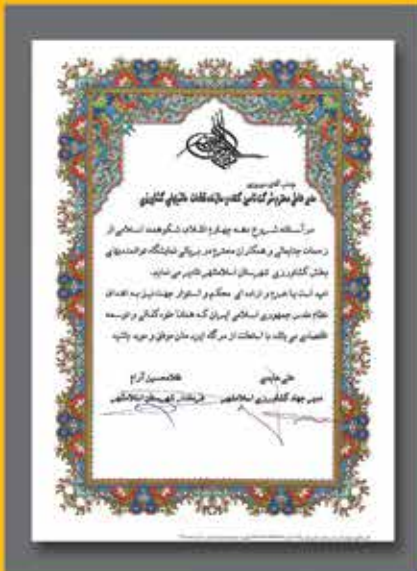 جناب آقای
مدیر عامل محترم شرکت تامین کننده و سازنده قطعات ماشینهای کشاورزی
در آستانه شروع دهه چهارم انقلاب شکوهمند اسلامی از
زحمات جنابعالی و همکاران محترم در برپائی نمایشگاه توانمندیهای
بخش کشاورزی شهرستان اسلامشهر تقدیر می نماید.
امید است با عزم و اراده ای محکم و استوار جهت نیل به اهداف
نظام مقدس جمهوری اسلامی ایران که همانا خودکفائی و توسعه
اقتصادی می باشد با استعانت از درگاه ایزد منان موفق و موید باشید
علی حاتمی غلامحسین آرام
مدیر جهاد کشاورزی اسلامشهر فرماندار شهرستان اسلامشهر